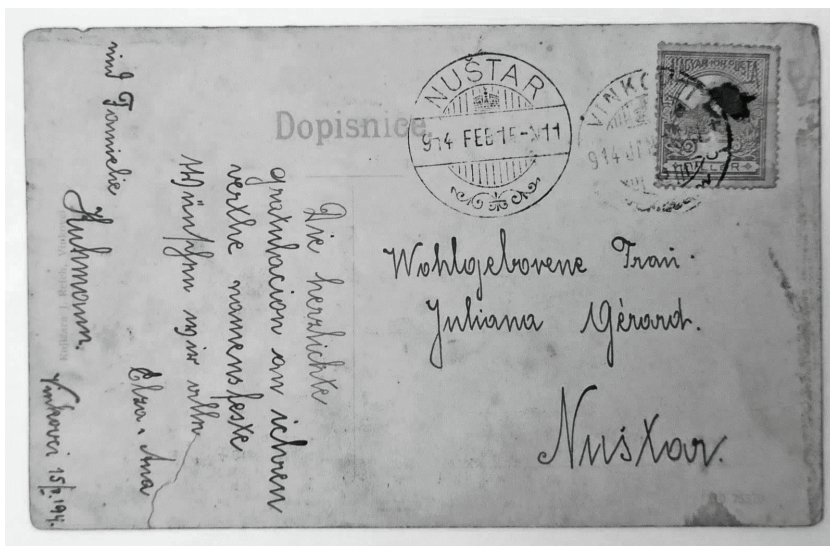 Dopisnica
NUŠTAR
914 FEB 15
VINKOVCI
MAGYAR KIR. POSTA
Wohlgeborene Frau
Juliana Gérard.
Nuštar.
Die herzlichste
gratulacion an ichren
werthe namensfeste
wünschen wir alle
Elza, Ana
und Familie
Kuhmann.
Vinkovci